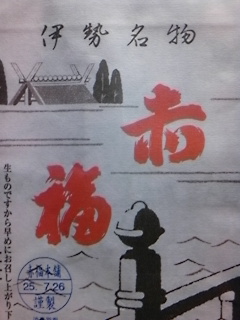 伊勢名物
赤福
生ものですから早めにお召し上がり下
赤福本舗
25.7.26
謹製